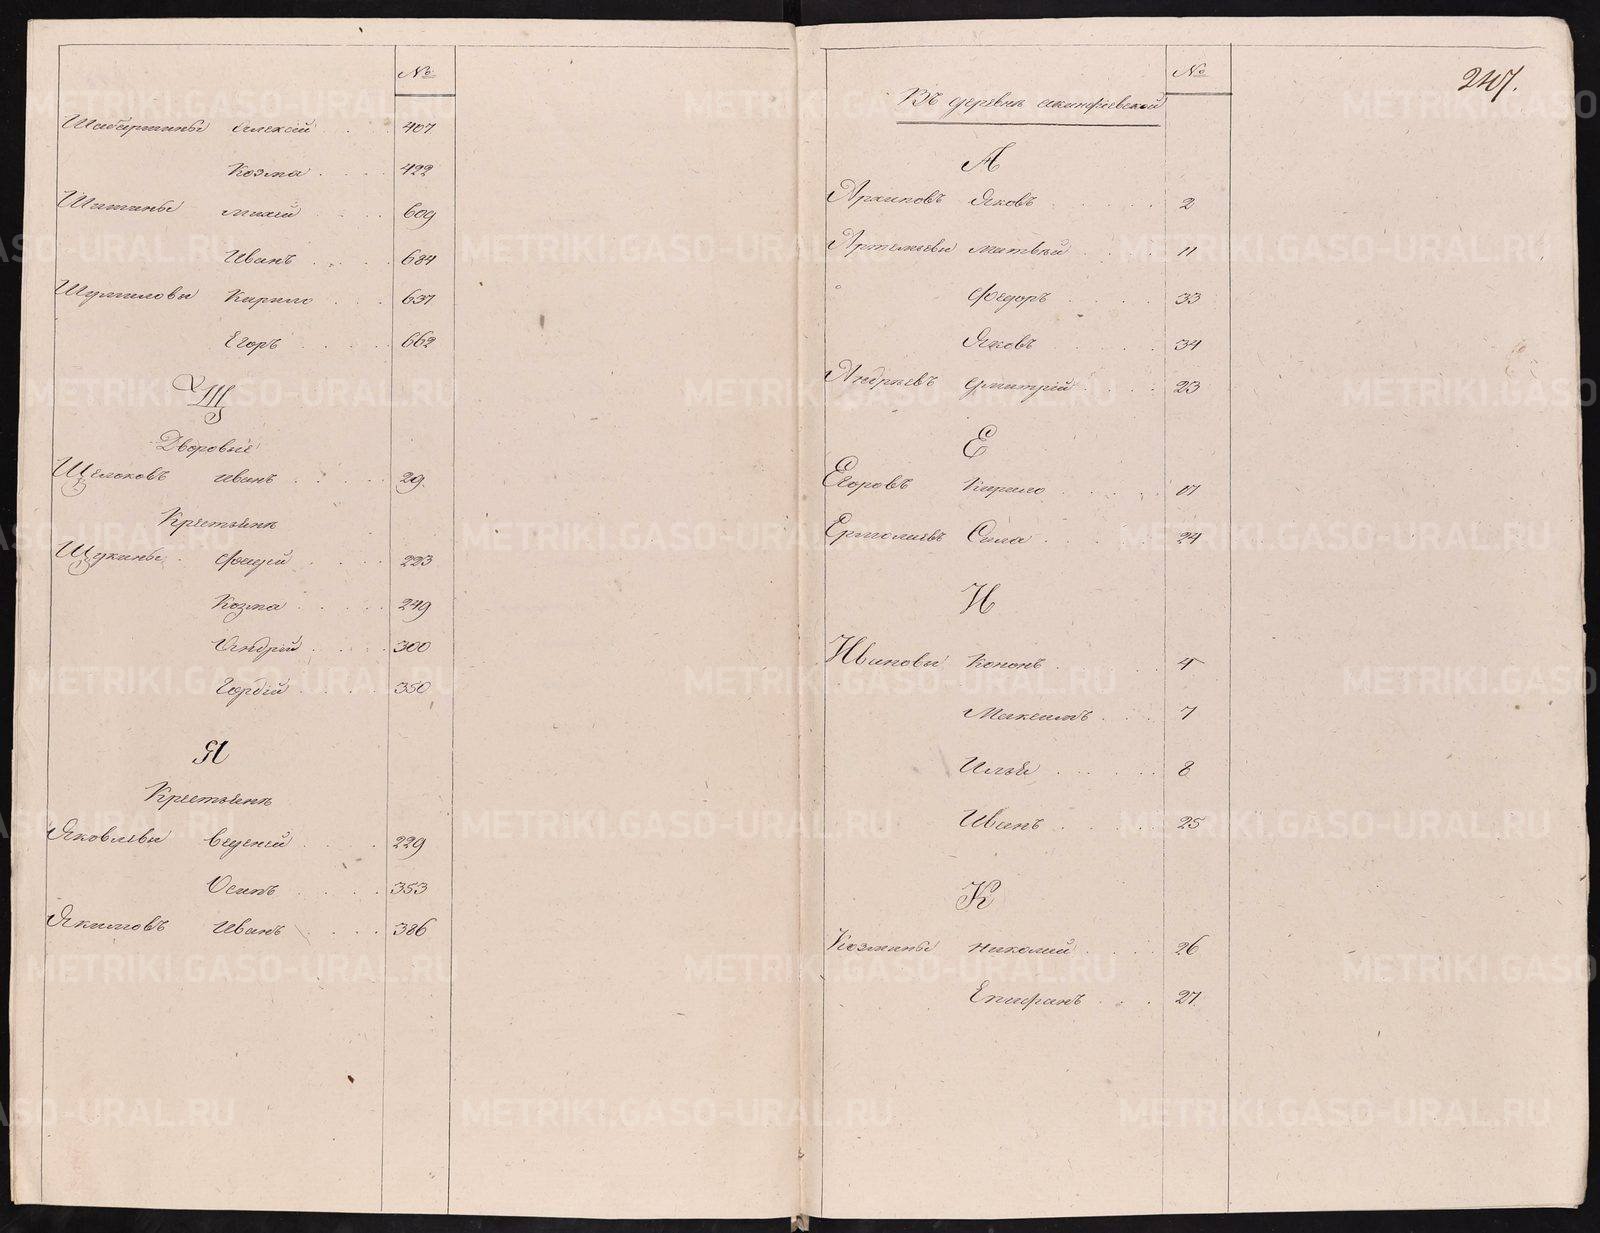 №
Шабаршины Алексѣй 407
Козма 422
Шатины 609
Иванъ 684
Шумиловы Кирило 637
Егоръ 662
Щ
Дворовые
Щелоковъ Иванъ 29
Крестьяне
Щукины Фощей 223
Козма 249
Андрей 300
Гордѣй 350
Я
Крестьяне
Яковлевы Веденѣй 229
Осипъ 353
Якимовъ Иванъ 386
№
247.
Въ деревнѣ Акинфіевской
А
Архиповъ Яковъ 2
Артемьевы Матвѣй 11
Федоръ 33
Яковъ 34
Андреевъ Дмитрій 23
Е
Егоровъ Кирило 17
Ермолаевъ Сила 24
И
Ивановы Кононъ 4
Максимъ 7
Илья 8
Иванъ 25
К
Козмины Николай 26
Епифанъ 27
METRIKI.GASO-URAL.RU